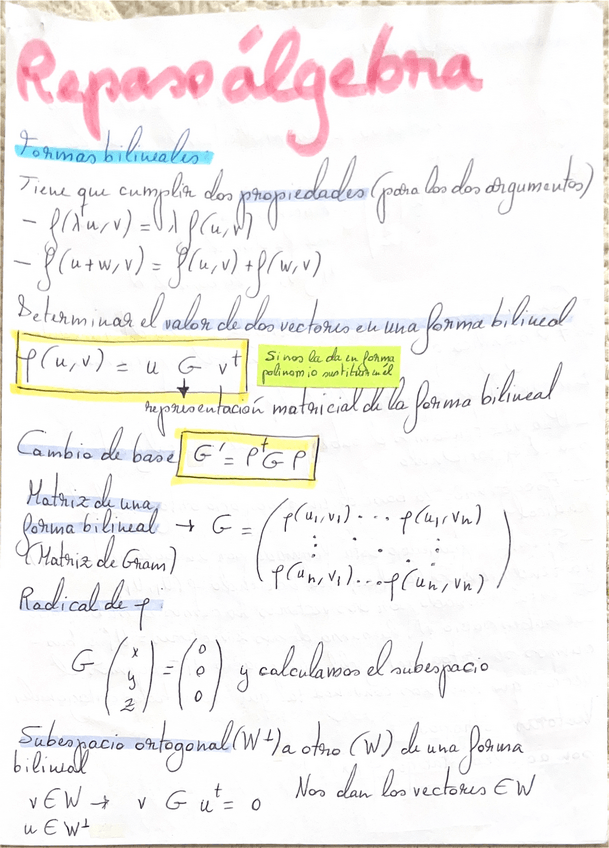 Repaso álgebra
Formas bilineales:
Tiene que cumplir dos propiedades (para los dos argumentos)
- φ(λu, v) = λ φ(u, v)
- φ(u+w, v) = φ(u, v) + φ(w, v)
Determinar el valor de dos vectores en una forma bilineal
φ(u, v) = u G vᵗ
Si nos la da en forma
polinomio sustituir en él
representación matricial de la forma bilineal
Cambio de base G' = PᵗG P
Matriz de una
forma bilineal → G = ( φ(u₁, v₁) ... φ(u₁, vₙ)
(Matriz de Gram)
φ(uₙ, v₁) ... φ(uₙ, vₙ) )
Radical de φ:
G (x y z) = (0 0 0) y calculamos el subespacio
Subespacio ortogonal (W⊥) a otro (W) de una forma
bilineal
v ∈ W → v G uᵗ = 0 Nos dan los vectores ∈ W
u ∈ W⊥